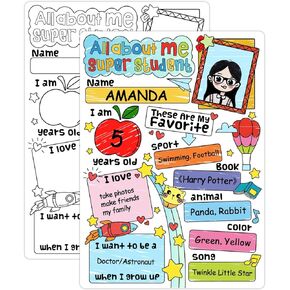 All about me
super
Name
I am
years old
I love
I want to
when I grow
All about me
super student
Name
AMANDA
I am
5
years old
I love
take photos
make friends
my family
I want to be a
Doctor/Astronaut
when I grow up
These Are My
Favorite
sport
Swimming, Football
BOOK
《Harry Potter》
animal
Panda, Rabbit
color
Green, Yellow
song
Twinkle Little Star